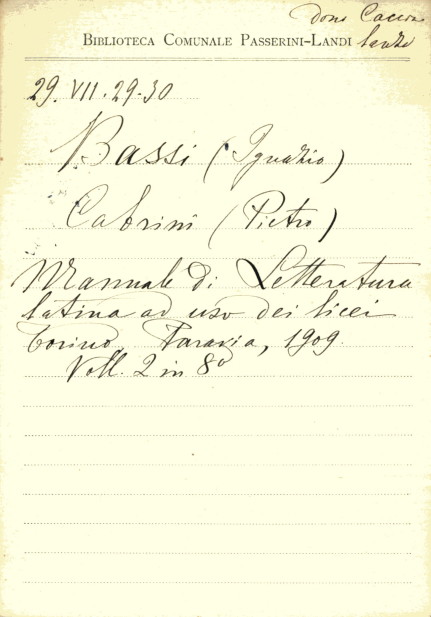 dono Caccia
BIBLIOTECA COMUNALE PASSERINI-LANDI
29. VII. 29-30
Bassi (Ignazio)
Cabrini (Pietro)
Manuale di Letteratura
latina ad uso dei licei
Torino, Paravia, 1909.
Voll. 2 in 8º